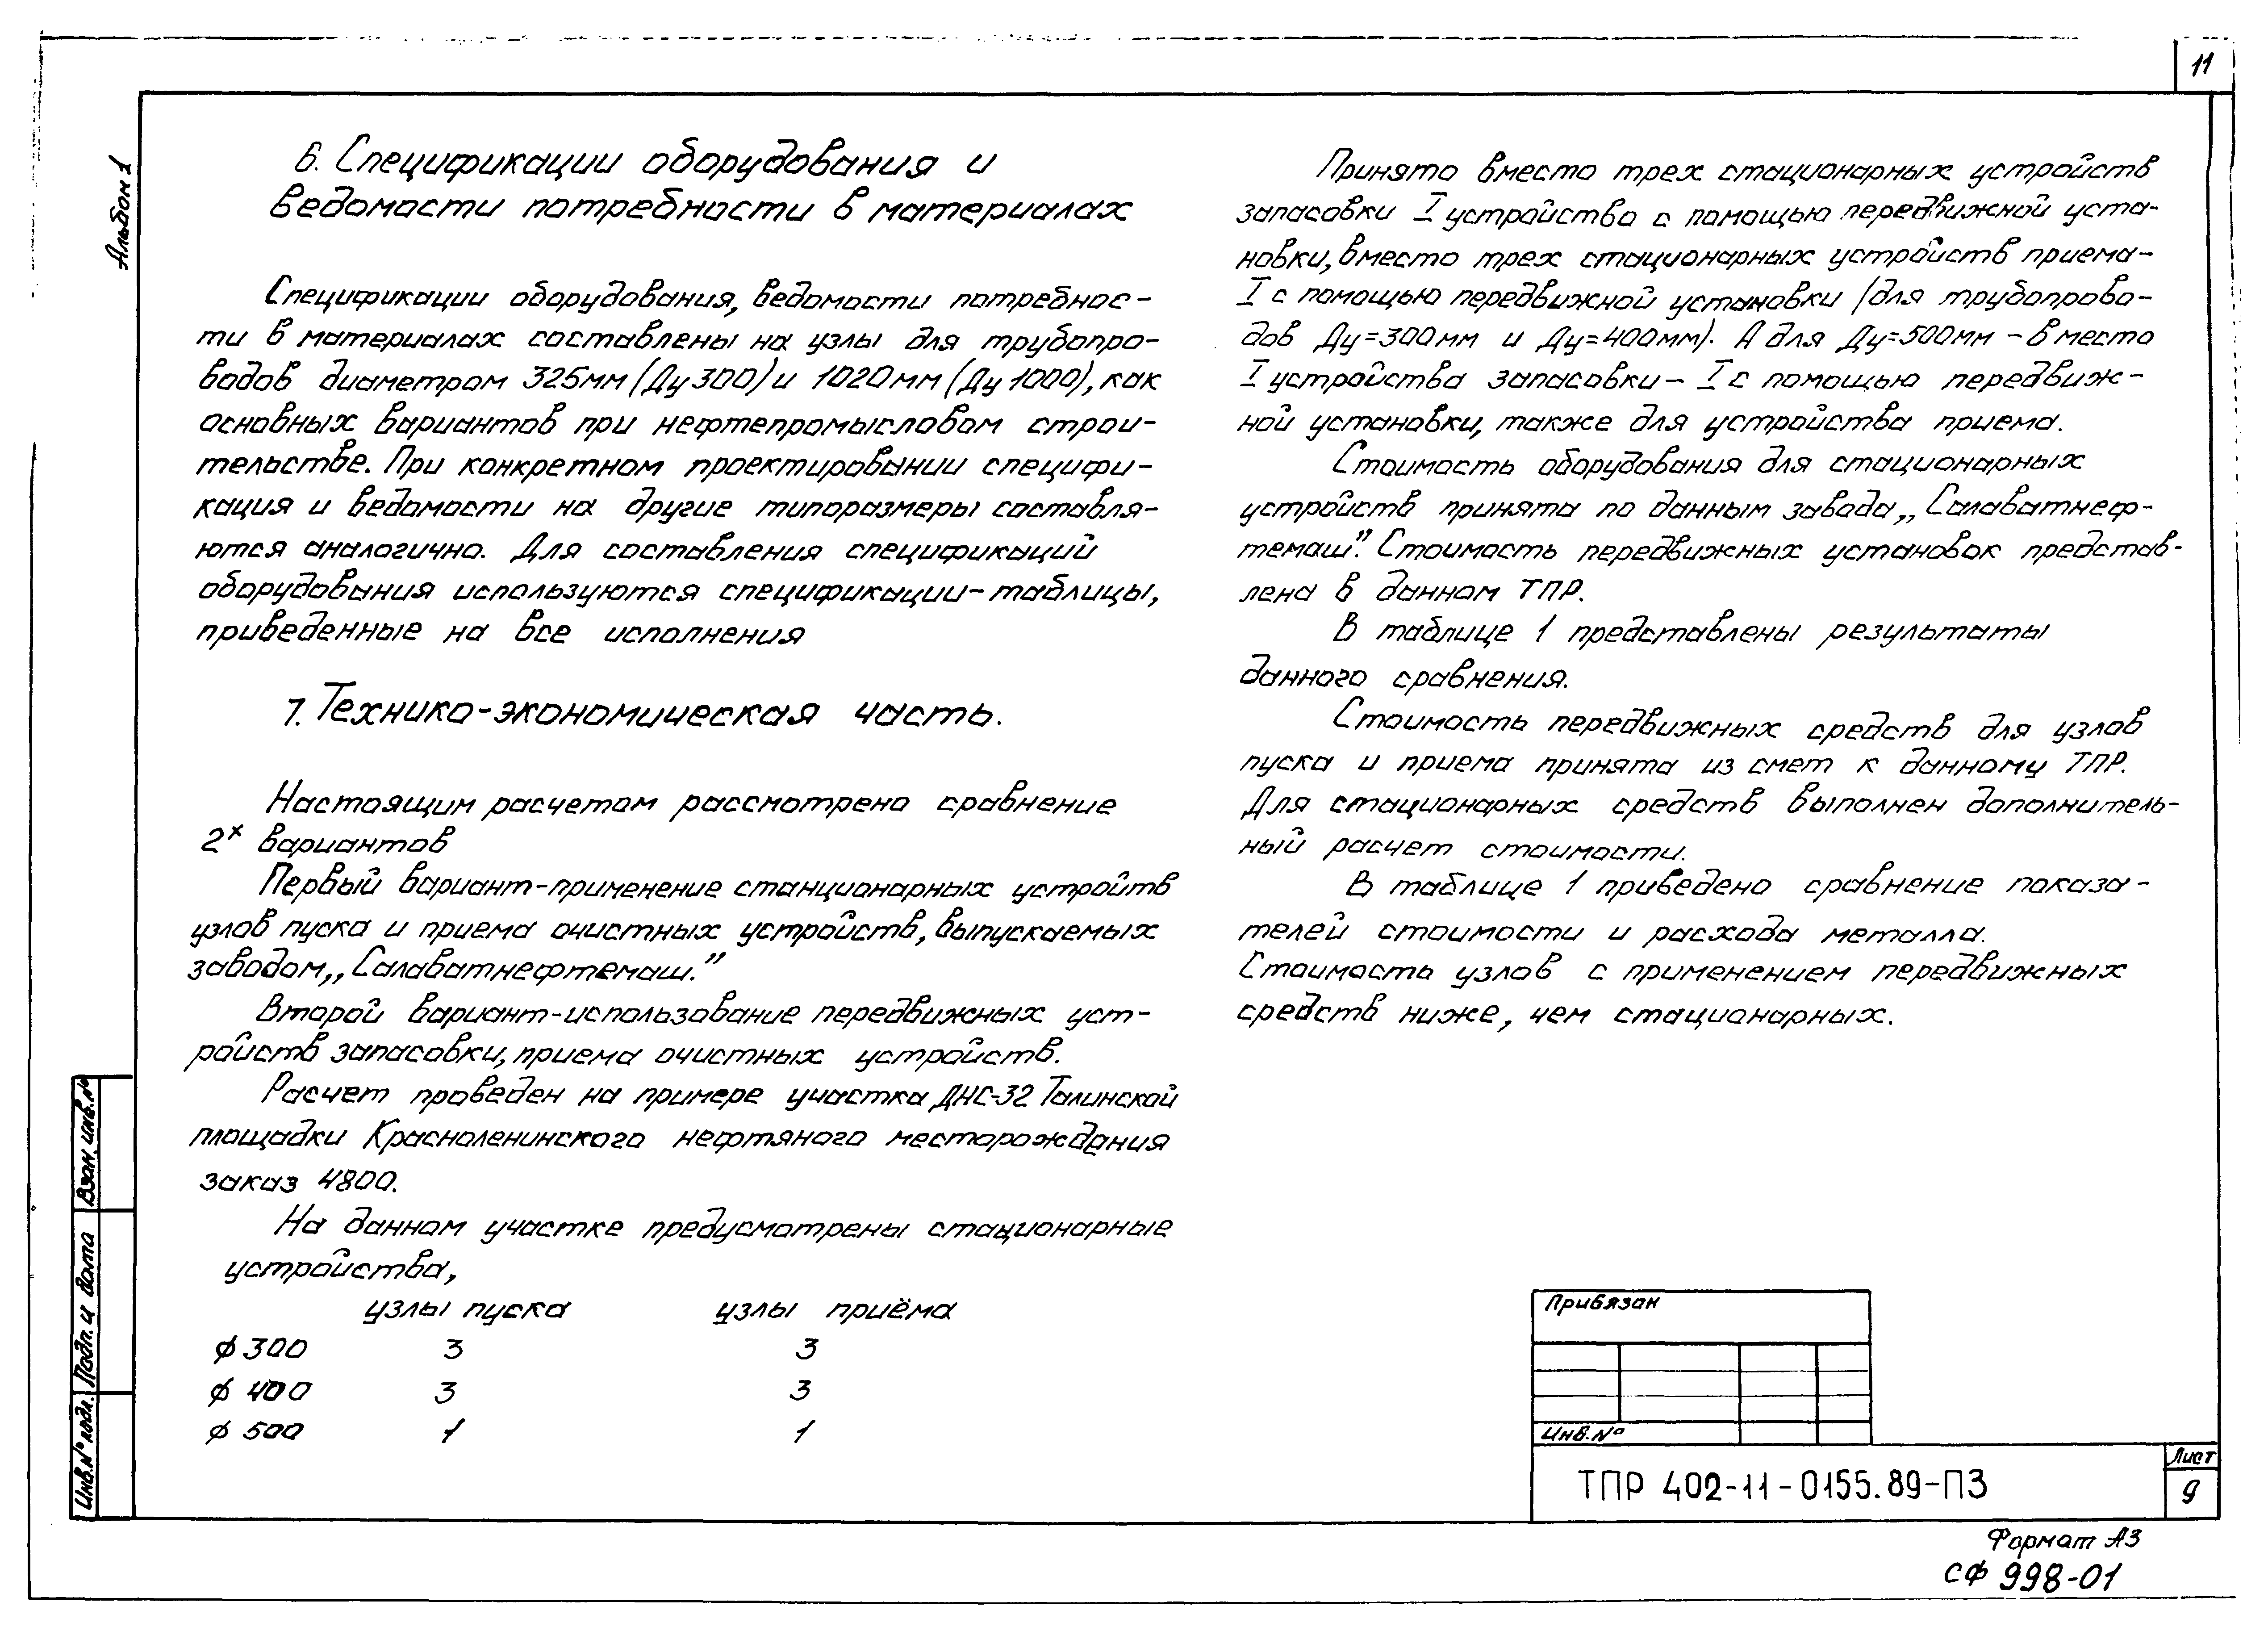 11
Альбом 1
6. Спецификации оборудования и
ведомости потребности в материалах
Спецификации оборудования, ведомости потребнос-
ти в материалах составлены на узлы для трубопро-
водов диаметром 325мм (Ду 300) и 1020мм (Ду 1000), как
основных вариантов при нефтепромысловом строи-
тельстве. При конкретном проектировании специфи-
кация и ведомости на другие типоразмеры составля-
ются аналогично. Для составления спецификаций
оборудования используются спецификации-таблицы,
приведенные на все исполнения
7. Технико-экономическая часть.
Настоящим расчетом рассмотрено сравнение
2х вариантов
Первый вариант-применение станционарных устройтв
узлов пуска и приема очистных устройств, выпускаемых
заводом „Салаватнефтемаш."
Второй вариант-использование передвижных уст-
ройств запасовки, приема очистных устройств.
Расчет проведен на примере участка ДНС-32 Талинской
площадки Красноленинского нефтяного месторождения
заказ 4800.
На данном участке предусмотрены стационарные
устройства,
узлы пуска узлы приёма
ϕ 300 3 3
ϕ 400 3 3
ϕ 500 1 1
Принято вместо трех стационарных устройств
запасовки I устройство с помощью передвижной уста-
новки, вместо трех стационарных устройств приема-
I с помощью передвижной установки (для трубопрово-
дов Ду=300мм и Ду=400мм). А для Ду=500мм - вместо
I устройства запасовки - I с помощью передвиж-
ной установки, также для устройства приема.
Стоимость оборудования для стационарных
устройств принята по данным завода „Салаватнеф-
темаш". Стоимость передвижных установок представ-
лена в данном ТПР.
В таблице 1 представлены результаты
данного сравнения.
Стоимость передвижных средств для узлов
пуска и приема принята из смет к данному ТПР.
Для стационарных средств выполнен дополнитель-
ный расчет стоимости.
В таблице 1 приведено сравнение показа-
телей стоимости и расхода металла.
Стоимость узлов с применением передвижных
средств ниже, чем стационарных.
Взам. инв. №
Подп. и дата
Инв. № подл.
Привязан
Инв. №
ТПР 402-11-0155.89-ПЗ
Лист
9
Формат А3
СФ 998-01